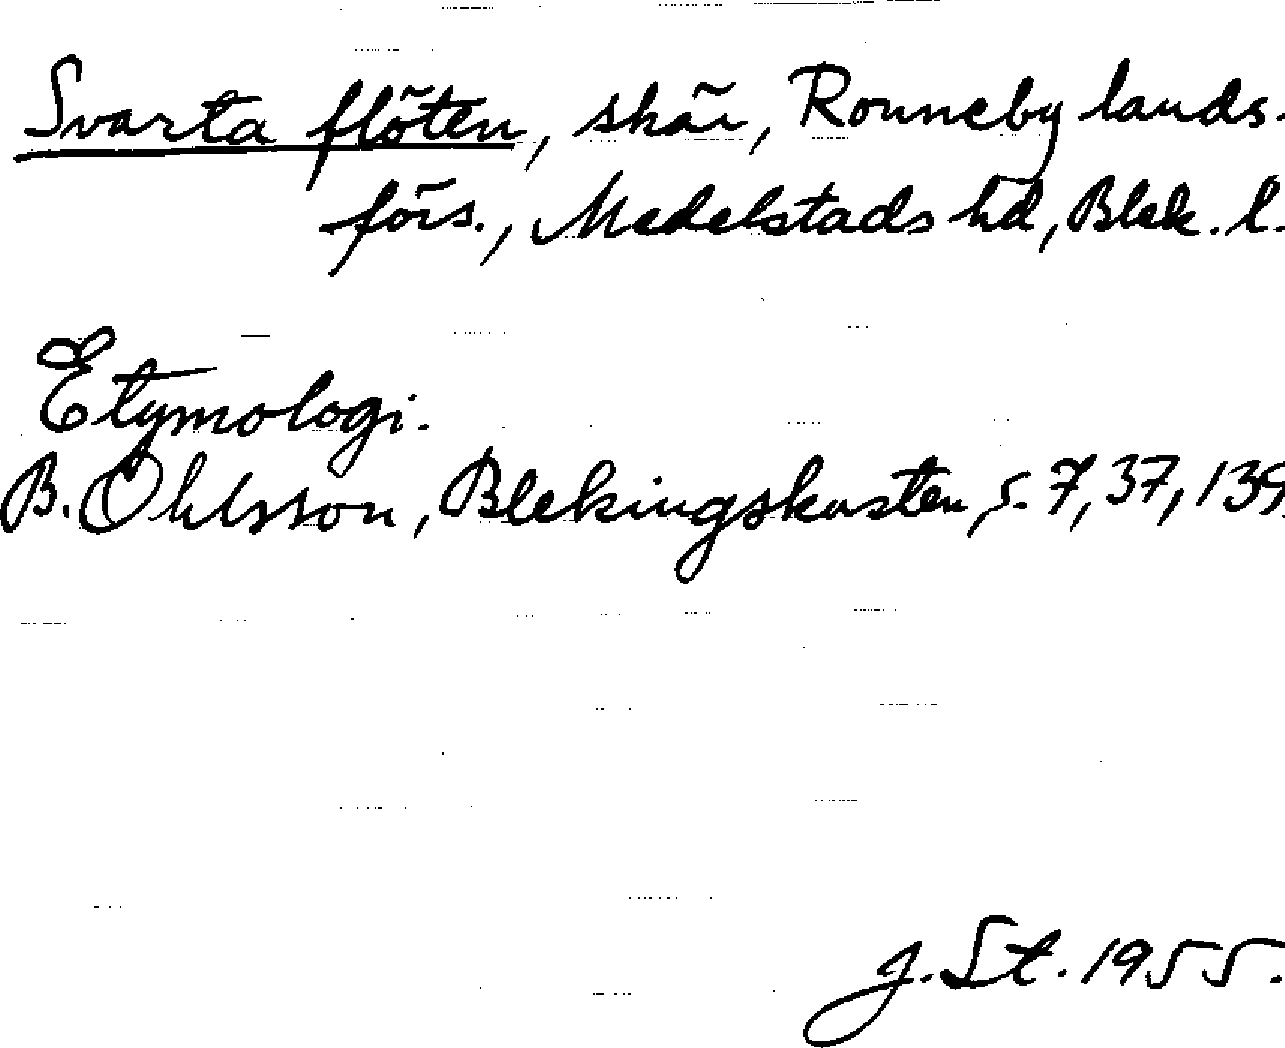 Svarta flöten, skär, Ronneby lands-
förs., Medelstads hd, Blek. l.
Etymologi.
B. Ohlsson, Blekingskusten, s. 7, 37, 139.
J. St. 1955.